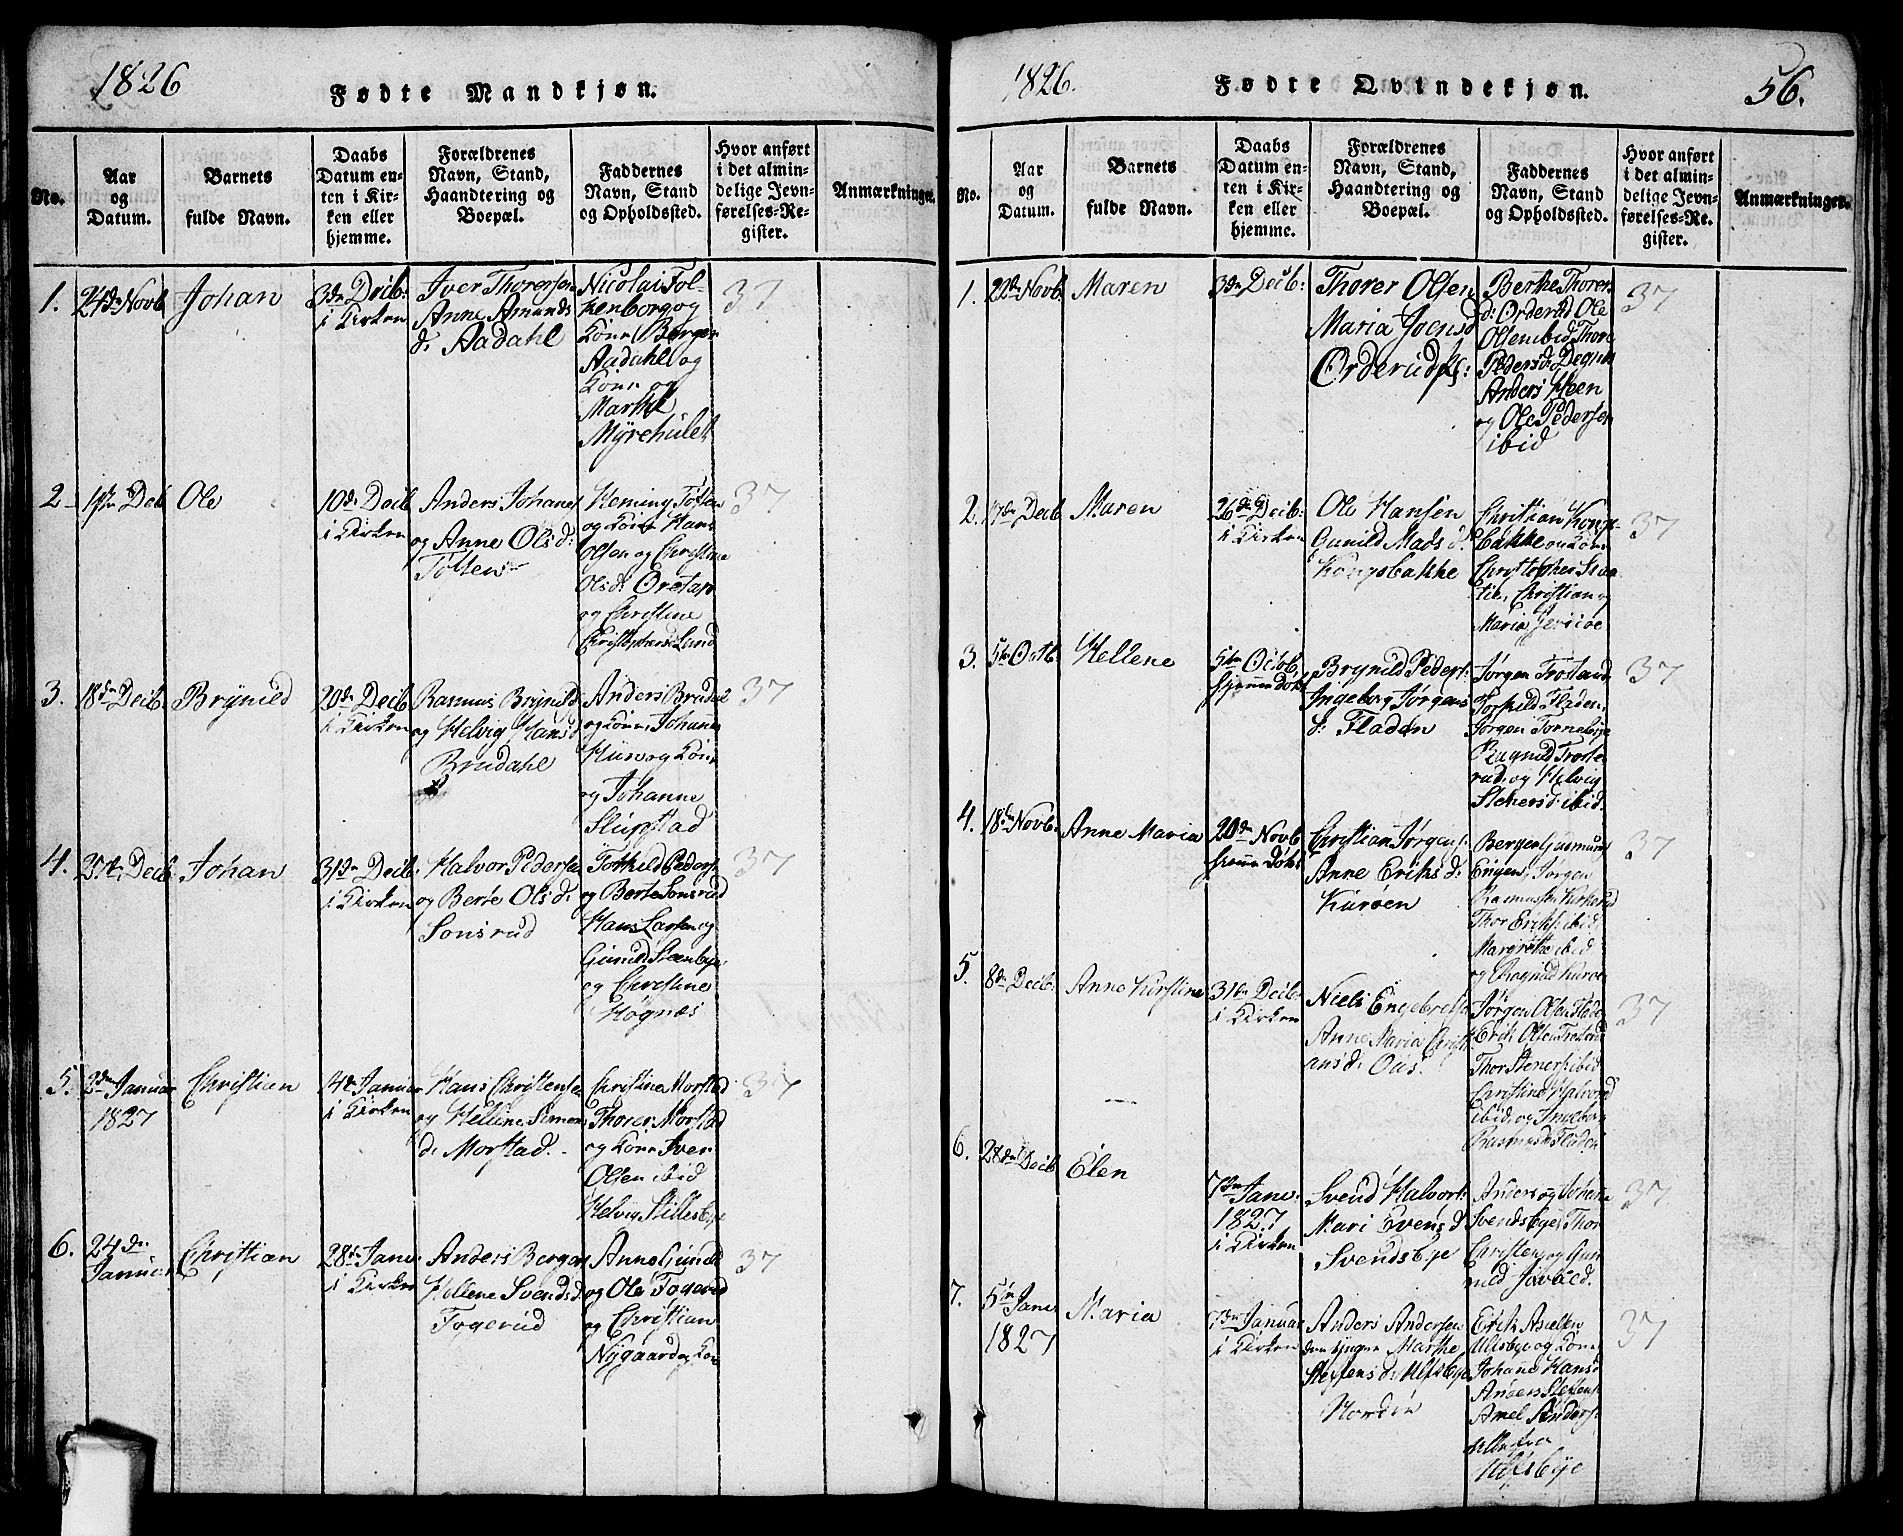 1826
Fødte Mandkjøn.
No.
Aar
og
Datum.
Barnets
fulde Navn.
Daabs
Datum en-
ten i Kir-
ken eller
hjemme.
Forældrenes
Navn, Stand,
Haandtering og
Boepæl.
Faddernes
Navn, Stand
og Opholdssted.
Hvor anført
i det almin-
delige Jevn-
førelses-Re-
gister.
Anmærkninger.
1.
24de Novb
Johan
3de Decb:
i Kirken
Iver Thorersen
Anne Amunds
d: Aadahl
Nicolai Fol-
kenborg og
Kone Bergen
Aadahl og
Kone og
Marthe
Myrehulet
37
2
Decb
Ole
10de Decb
i Kirken
Anders Johanes
og Anne Ols d:
Toften
Heming Toften
og Kone Hans
Olsen og Christine
Olsd:
og Christine
Lund
37
3.
18de Decb.
Brynild
20de Decb
i Kirken
Rasmus Brynild
og Helvig Hansd
Brudahl
Anders Brudal
og Kone, Johanne
Huse og Kone
og Johanne
Slupstad
37
4.
Decb.
Johan
31de Decb.
i Kirken
Halvor Pedersen
og Berte Ols d:
Sonsrud
Torkild Peders
og Berte Sonsrud
Hans Larsen og
Gunild Steenbye
og Christine
Høgnæs
37
5.
2den Januar
1827
Christian
14de Januar
i Kirken
Hans Christensen
og Hellene Simon
d: Morstad.
Christine Morstad
Thorer Morstad
og Kone Iver
Olsen ibid
Helvig Stillesbye
37
6.
24de
Januar
Christian
28de Janu:
i Kirken
Anders Bergers
Hellene Svends d.
Togerud
Anne Gunild
og Ole Togerud
og Christian
Nygaard og Kone
37
1826.
Fødte Qvindekjøn.
56.
No.
Aar
og
Datum.
Barnets
fulde Navn.
Daabs
Datum en-
ten i Kir-
ken eller
hjemme.
Forældrenes
Navn, Stand,
Haandtering og
Boepæl.
Faddernes
Navn, Stand
og Opholdssted.
Hvor anført
i det almin-
delige Jevn-
førelses-Re-
gister.
Anmærkninger.
1.
22de Novb
Maren
3de Decb:
Thorer Olsen
Maria Joensd
Orderud
Berthe Thorer
d: Orderud Ole
Olsen ibid Thore
Pedersd
Anders Heen
og Ole Pedersen
ibid
37
2.
17de Decb
Maren
26de Decb:
i Kirken
Ole Hansen
Gunild Mads d:
Kongsbakke
Christian Kongs-
bakke og Kone
Christopher
Christian og
Maria Jericoe
37
3.
5te Octb.
Hellene
5te Octob.
hjemmedøbt
Brynild Peders:
Ingeborg Jørgens
d: Fladen
Jørgen Trosterud
Torkild Fladen,
Jørgen Tornebye
Ragnild Troste
rud, og Helvig
Stenersd: ibid.
37
4.
18de Novb.
Anne Maria
20de Novb
hjemmedøbt
Christian Jørgens:
Anne Eriks d:
Kurøen
Berger Gudmund
Engen, Jørgen
Rasmussen Kirkerud
Thor Eriks: ibid,
Margrethe ibid
og Ragnild Kurøe
37
5.
8de Decb:
Anne Kirstine
31te Decb:
i Kirken
Niels Engebretsen
Anne Maria Christi
ansd: Ous.
Jørgen Olsen Flade
Erik Olsen Trosterud
Thor Steners: ibid
Christine Halvord
ibid, og Ingeborg
Rasmusd: Fladen
37
6.
28de Decb
Elen
7de Janu.
1827
i Kirken
Svend Halvors:
Mari Evens d
Svendsbye
Anders og Johanne
Svendsbye, Thor
Christens og Gun
nild
37
7.
5te Janu
1827
Maria
7de Januar
i Kirken
Anders Andersen
den yngre Marthe
Steffens d: Ulfsbye
Nordre
Erik Axelsen
Ulfsbye og Kone
Johanne Hansd
Anders Steffens:
Amel Anders:
alle fra
Ulfsbye
37